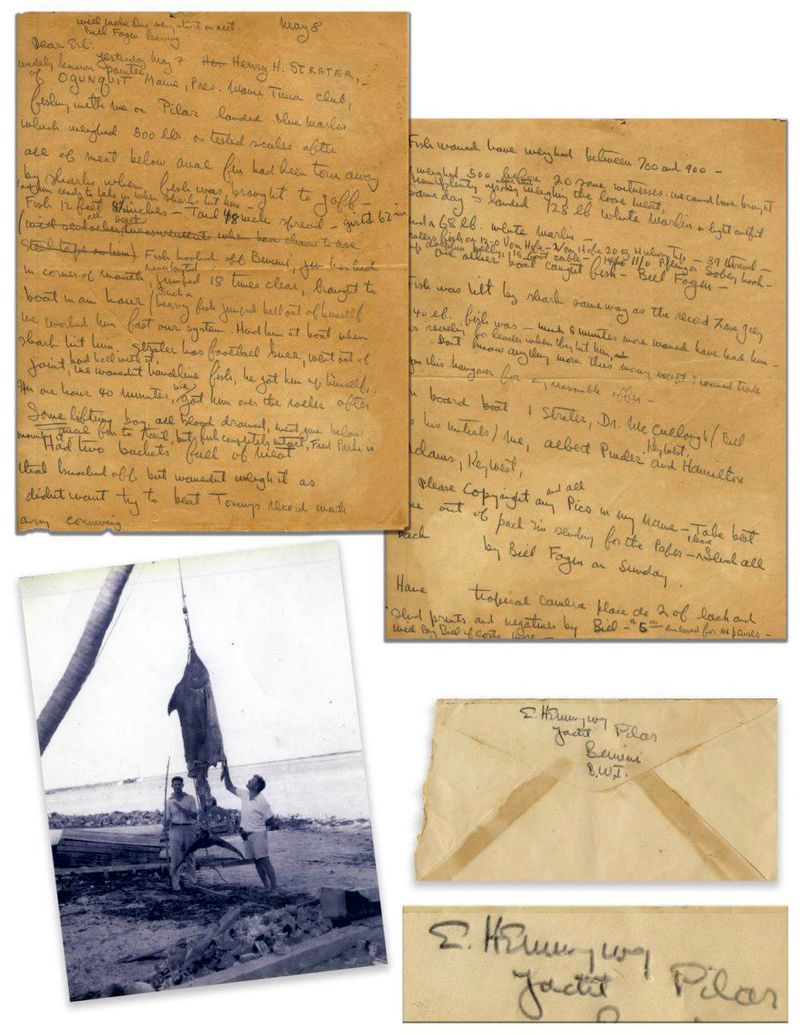 will make this very short on acct.
Bill Fagen leaving
May 8
Dear Erl:
yesterday May 7 Henry H. STRATER, —
widely known painter
of OGUNQUIT Maine, Pres. Maine Tuna Club,
fishing with me on Pilar landed Blue Marlin
which weighed 500 lbs on tested scales after
all of meat below anal fin had been torn away
by sharks when fish was brought to gaff —
had him ready to take in when sharks hit him —
Fish 12 feet 8 inches — Tail 48 inch spread — girth 62 in
(will send other measurements when have chance to use
Steel tape on him) Fish hooked off Bimini, hooked
in corner of mouth, never jumped 18 times clear, brought to
boat in an hour such a heavy fish jumped hell out of himself
we worked him fast our system. Had him at boat when
shark hit him. Strater has football knee, went out of
joint, had hell with it, we wouldn't handline fish, he got him up himself.
In one hour 40 minutes, we got him over the roller after
Some lifting boy, all blood drained, meat gone below
anal fin to tail, but fish completely intact, Fred Parke is
mounting
Had two buckets full of meat
that knocked off but wouldn't weigh it as
didn't want try to beat Tommy's record with
any conniving
Fish would have weighed between 700 and 900 —
weighed 500 before 20 some witnesses. we could have brought
plenty up by weighing the loose meat,
same day I landed 128 lb white marlin on light outfit
and a 68 lb. white marlin
fish on 12/0 Von Hofe — Von Hofe 20 oz Hickory Tip — 39 thread —
15 foot cable — 14/0 Pflueger Sobey hook —
one other boat caught fish — Bill Fagen —
Fish was hit by shark same way as the record Zane Grey
40 lb. fish was — 5 minutes more would have had him —
was reaching for leader when they hit him,
Don't know anything more this morning except I would trade
you this hangover for any reasonable offer —
On board boat, Strater, Dr. McCullough (Bill
his initials) me, Albert Pinder Key West, and Hamilton
Adams, Key West,
Please Copyright any Pics in my name — and all Take best
one out of pack I'm sending for the Paper — Send all
back
by Bill Fagen on Sunday.
Have tropical camera place do 2 of each and
Send prints and negatives by Bill — $5.00 enclosed for expenses —
will pay Bill if costs more —
E. Hemingway
Yacht Pilar
Bimini
B.W.I.
E. Hemingway
Yacht Pilar